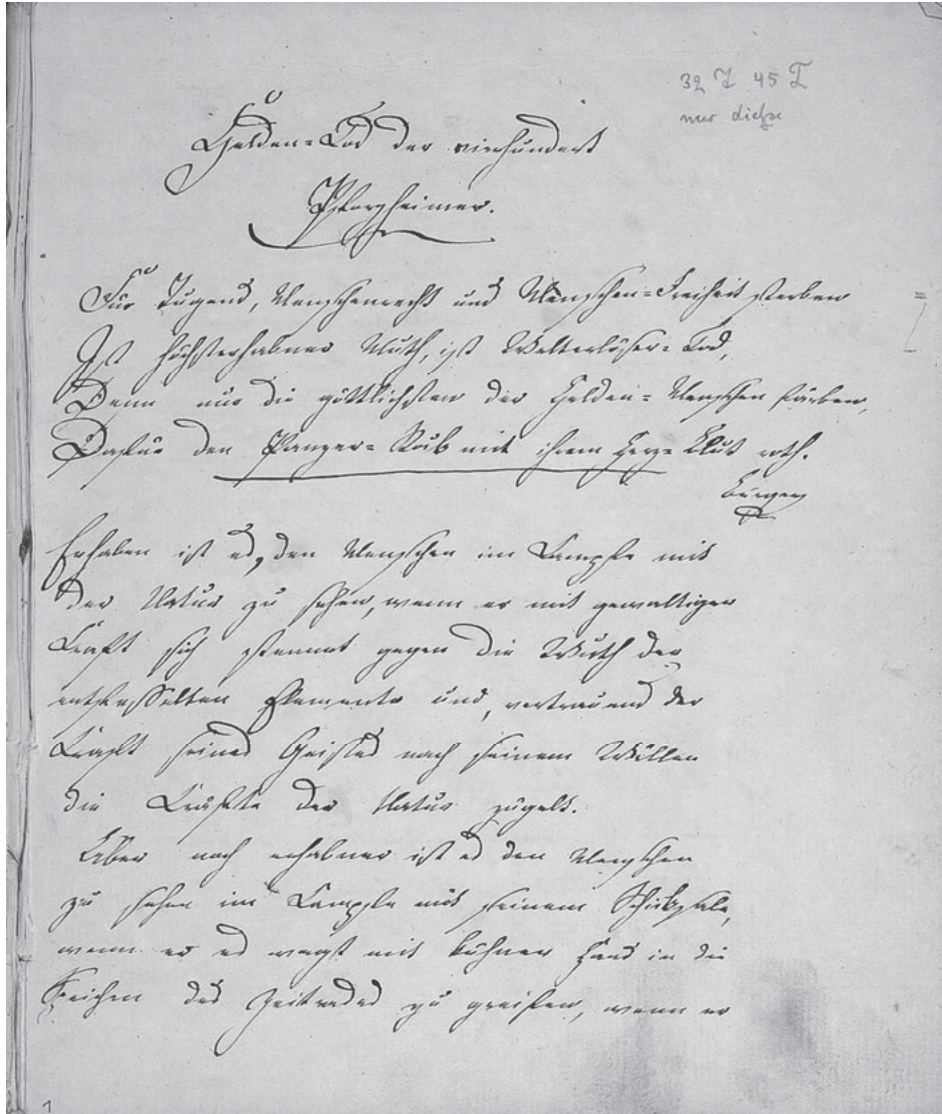 nur diese
Helden=Tod der vierhundert
Pforzheimer.
Für Tugend, Menschenrecht und Menschen=Freiheit sterben
Ist höchsterhabner Muth, ist Welterlöser=Tod,
Denn nur die göttlichsten der Helden=Menschen färben,
Dafür den Panzer=Rock mit ihrem Herz=Blut roth.
Bürger
Erhaben ist es, den Menschen im Kampfe mit
der Natur zu sehen, wenn er mit gewaltiger
Kraft sich stemmt gegen die Wuth der
entfesselten Elemente und, vertrauend der
Kraft seines Geistes nach seinem Willen
die Kräfte der Natur zügelt.
Aber noch erhabner ist es den Menschen
zu sehen im Kampfe mit seinem Schicksale,
wenn er es wagt mit kühner Hand in die
Speichen des Zeitrades zu greifen, wenn er
1